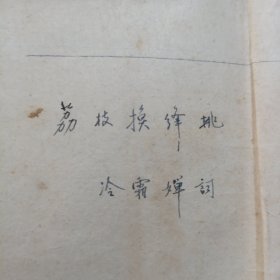 荔枝换绛桃
冷霜婵词